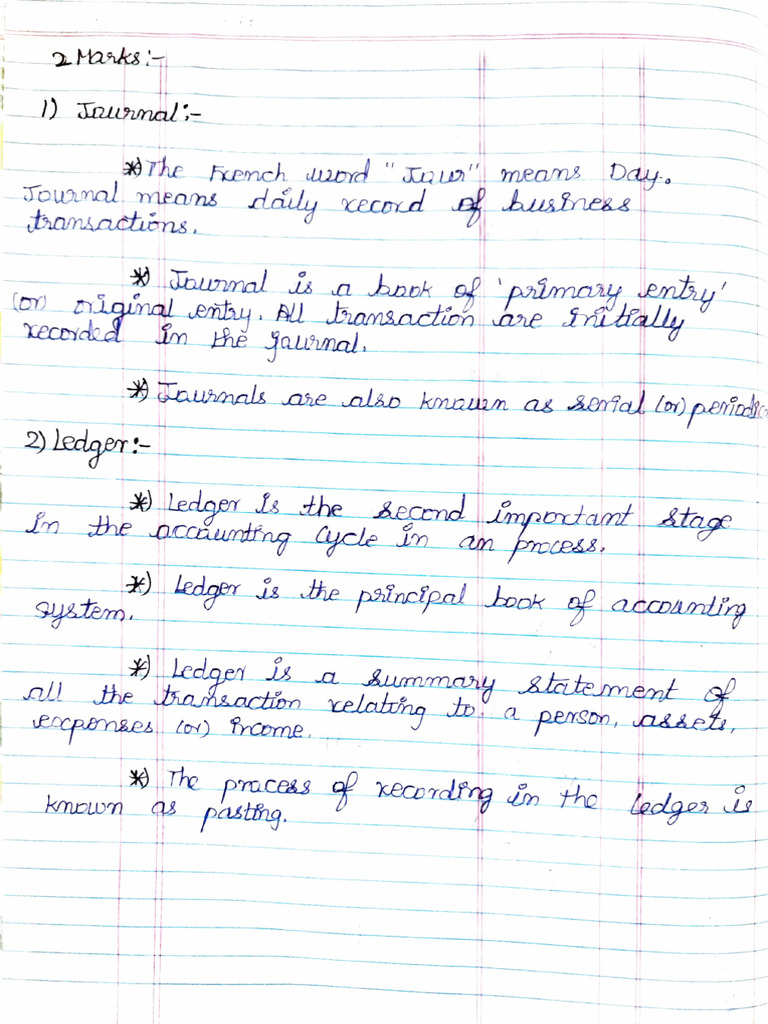 2 Marks:-
1) Journal:-
*) The French word "Jour" means Day.
Journal means daily record of business
transactions.
*) Journal is a book of 'primary entry'
(or) original entry. All transaction are initially
recorded in the journal.
*) Journals are also known as serial (or)
2) Ledger:-
*) Ledger is the second important stage
in the accounting cycle in an process.
*) Ledger is the principal book of accounting
system.
*) Ledger is a summary statement of
all the transaction relating to a person, assets,
expenses (or) income.
*) The process of recording in the ledger is
known as posting.